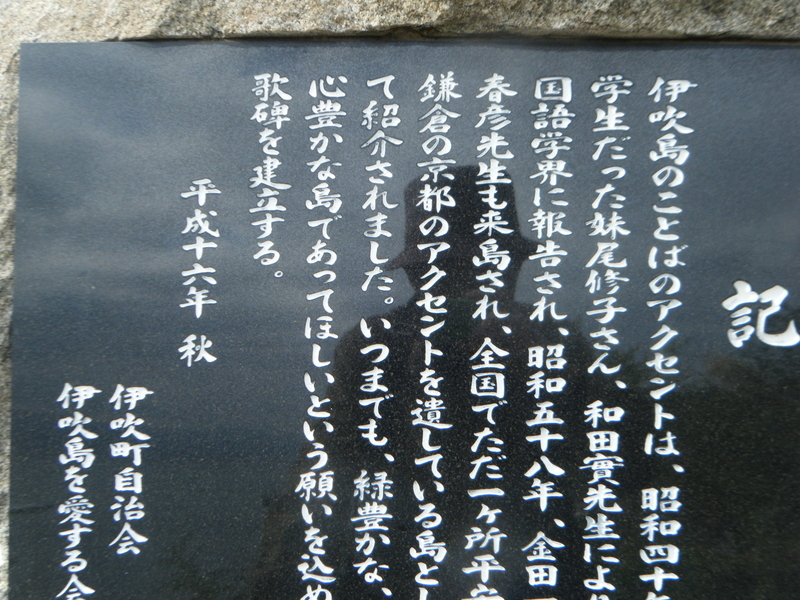 記
伊吹島のことばのアクセントは、昭和四十年
学生だった妹尾修子さん、和田實先生により
国語学界に報告され、昭和五十八年、金田一
春彦先生も来島され、全国でただ一ヶ所平安
鎌倉の京都のアクセントを遺している島とし
て紹介されました。いつまでも、緑豊かな、
心豊かな島であってほしいという願いを込め
歌碑を建立する。
平成十六年 秋
伊吹町自治会
伊吹島を愛する会